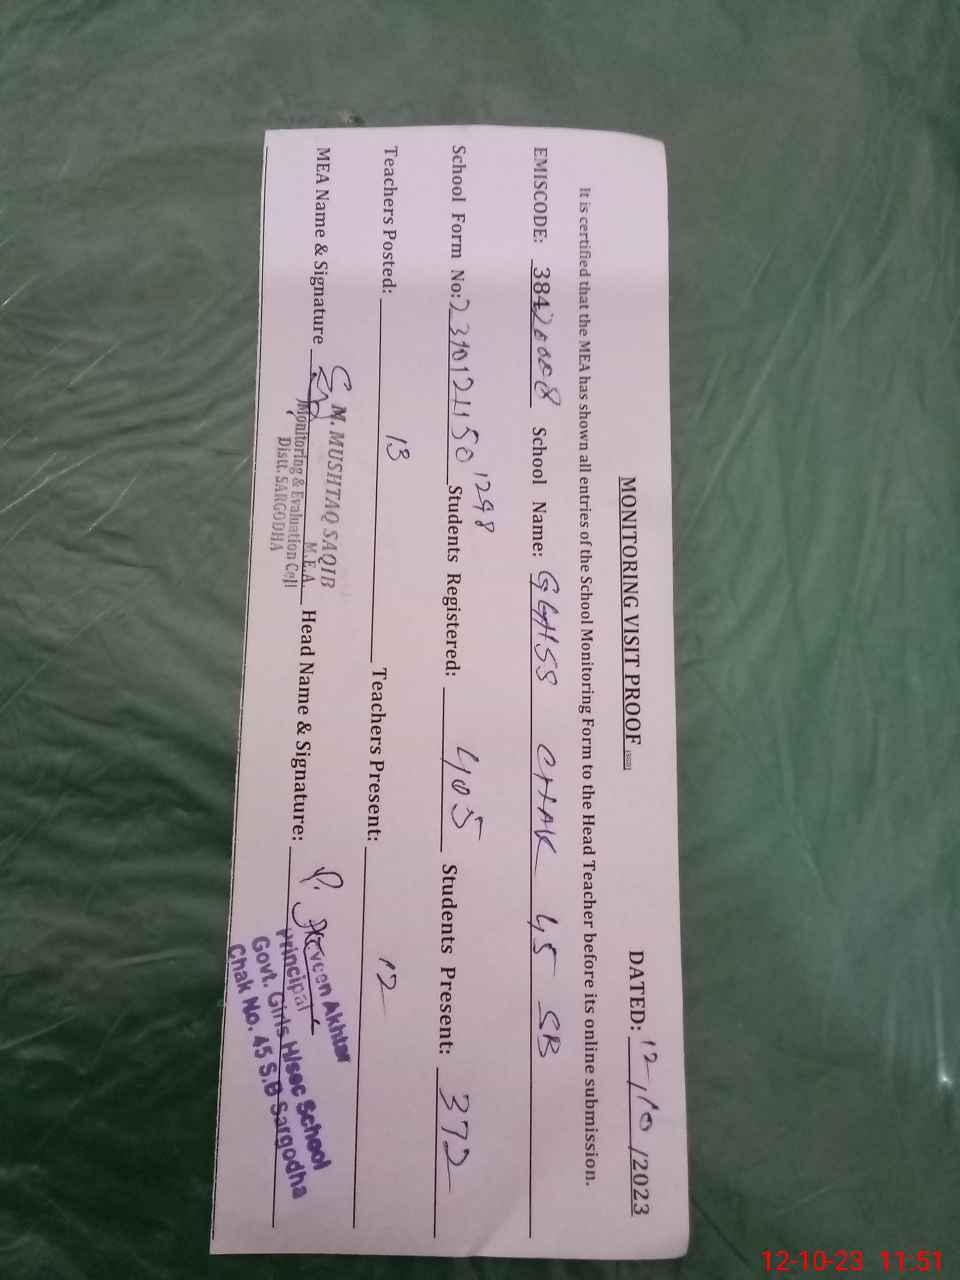 MONITORING VISIT PROOF
DATED: 12/10/2023
It is certified that the MEA has shown all entries of the School Monitoring Form to the Head Teacher before its online submission.
EMISCODE: 38420008 School Name: GGHSS CHAK 45 SB
1298
School Form No: 2310121150 Students Registered: 405 Students Present: 372
Teachers Posted: 13 Teachers Present: 12
MEA Name & Signature Head Name & Signature:
M. MUSHTAQ SAQIB
M.E.A.
Monitoring & Evaluation Cell
Distt. SARGODHA
P. Akhter
Principal
Govt. Girls H/sec School
Chak No. 45 S.B Sargodha
12-10-23 11:51